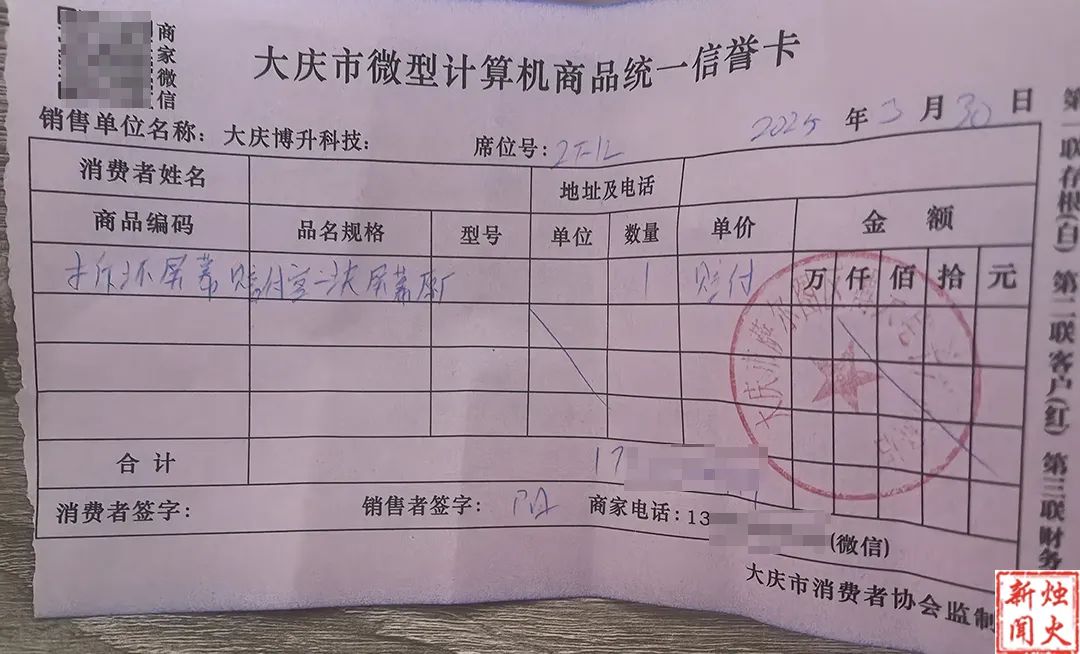 商家微信
大庆市微型计算机商品统一信誉卡
销售单位名称：大庆博升科技： 席位号：2F-12 2025年3月30日
消费者姓名 地址及电话
商品编码 品名规格 型号 单位 数量 单价 金额
坏屏幕 赔付 屏幕 1 赔付 万仟佰拾元
合计 17
消费者签字： 销售者签字： 商家电话：13 (微信)
大庆市消费者协会监制
第一联存根(白) 第二联客户(红) 第三联财务
大庆市萨尔图
烛火新闻